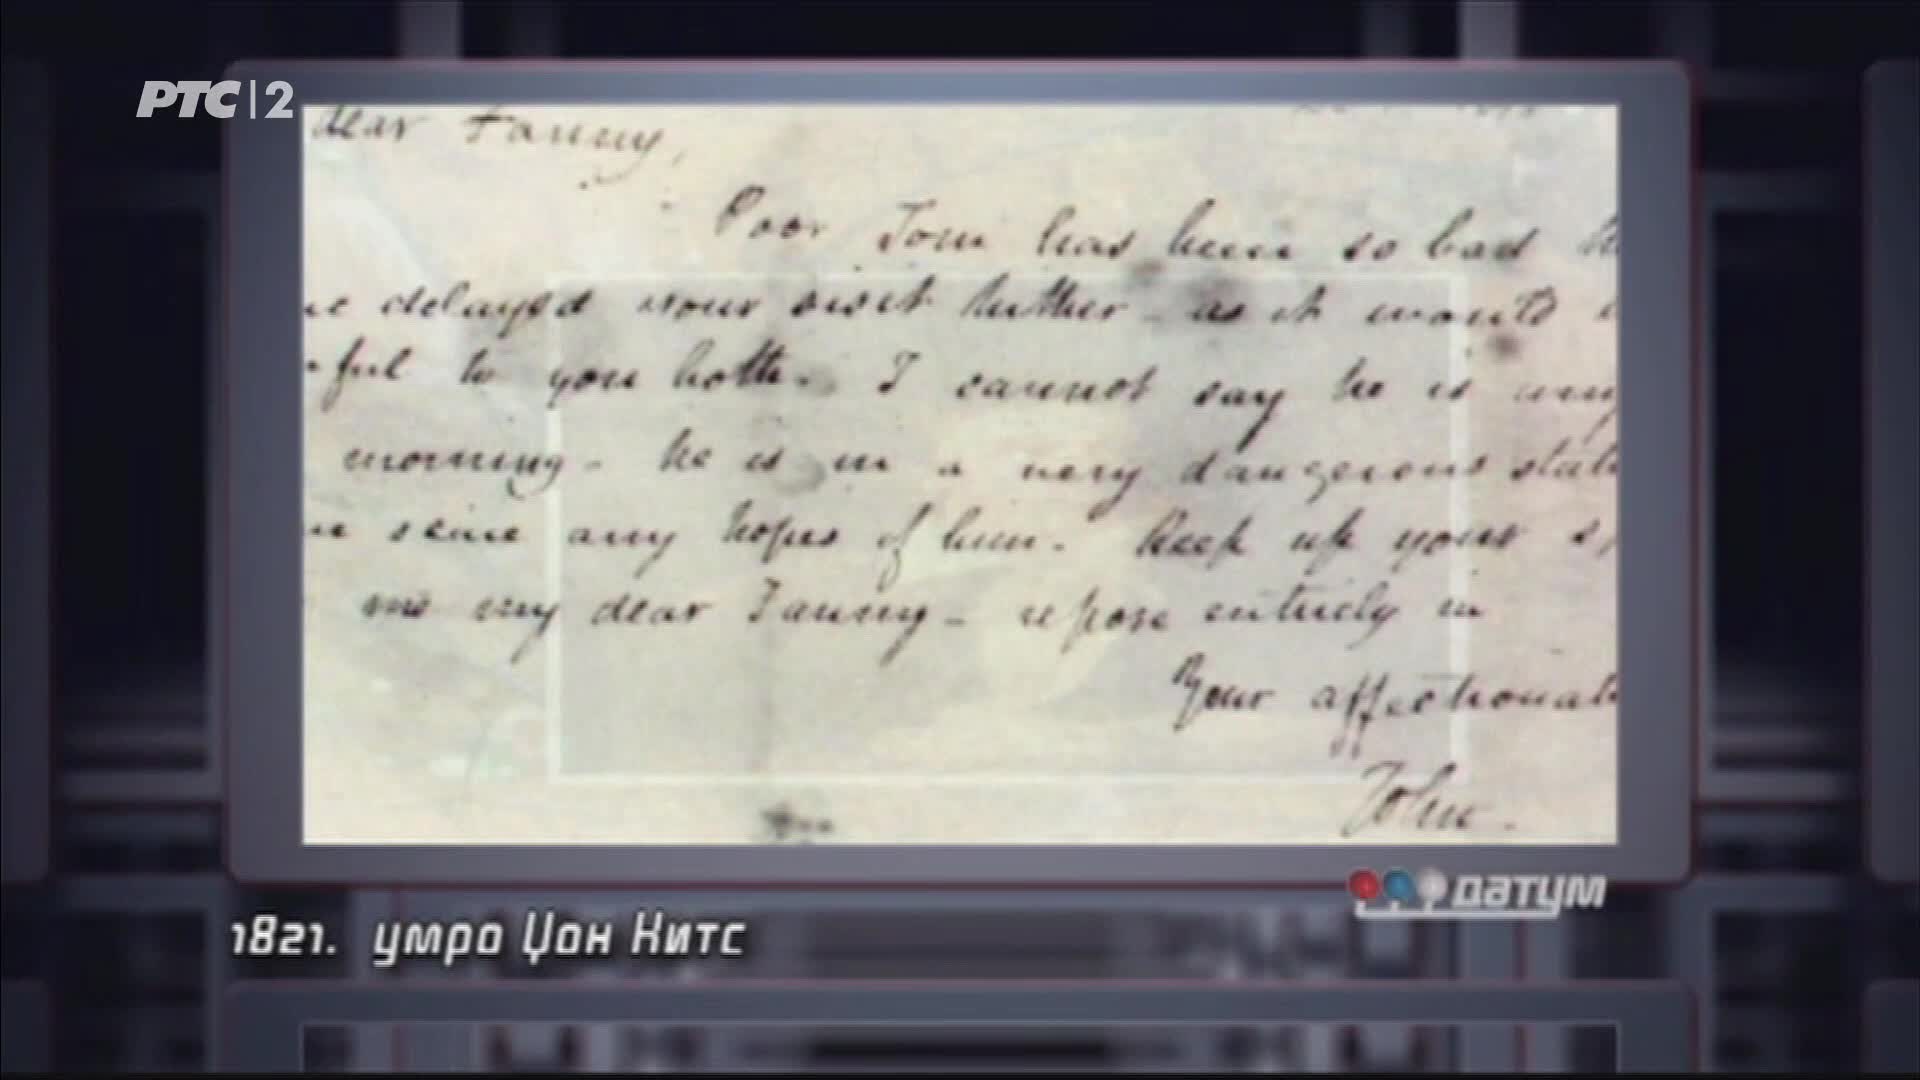 РТС|2
dear Fanny,
Poor Tom has been so bad
delayed your visit hither - as it would
ful to you both. I cannot say he is any
morning - he is in a very dangerous state
any hopes of him. Keep up your
me my dear Fanny - repose entirely in
Your affectionate
John.
датум
1821. умро Џон Китс